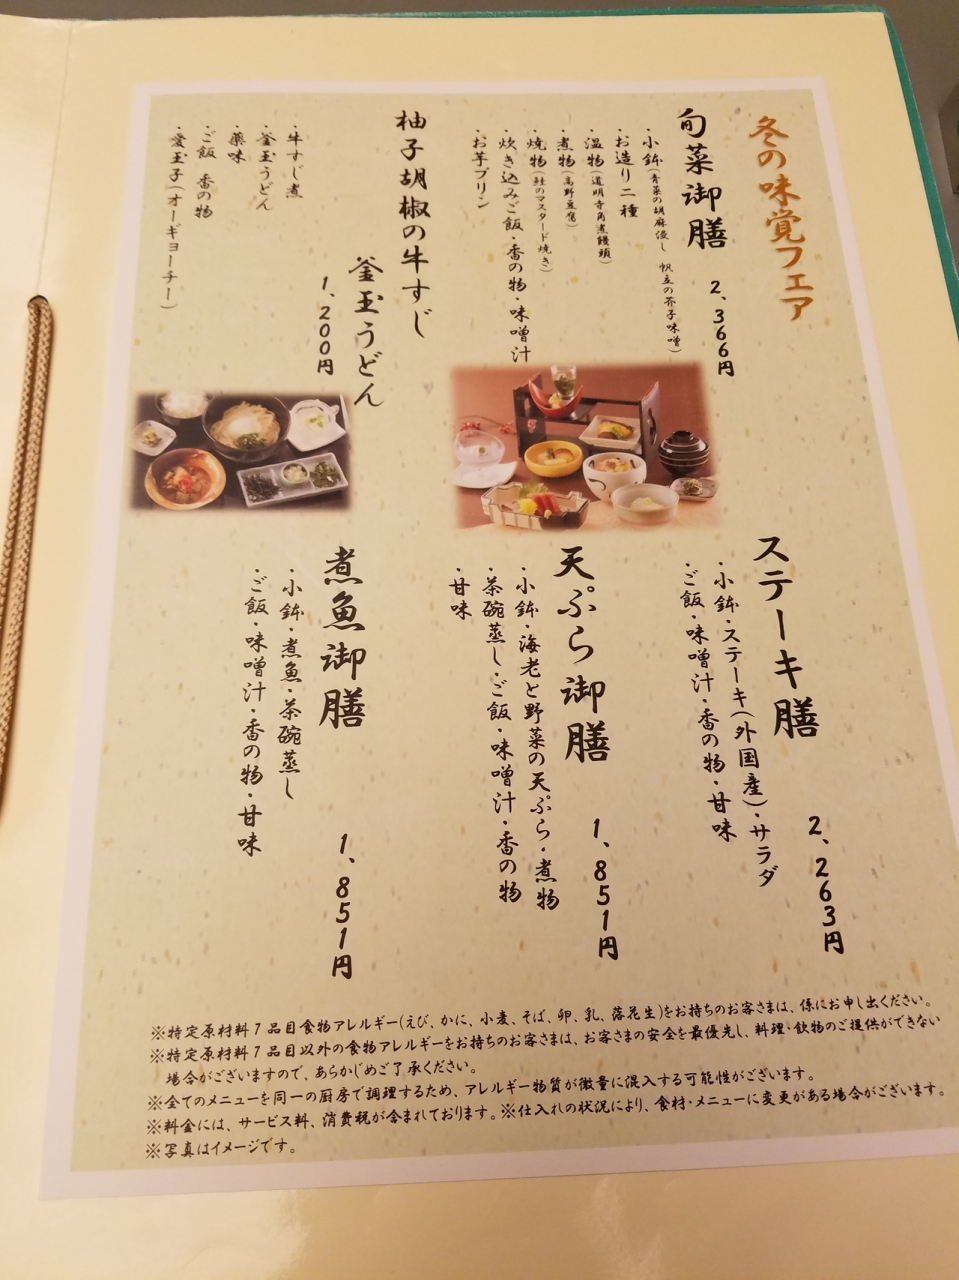 冬の味覚フェア
旬菜御膳
2、366円
・小鉢(青菜の胡麻浸し 帆立の芥子味噌)
・お造り二種
・温物(道明寺角煮饅頭)
・煮物(高野豆腐)
・焼物(鮭のマスタード焼き)
・炊き込みご飯・香の物・味噌汁
・お芋プリン
柚子胡椒の牛すじ
釜玉うどん
1、200円
・牛すじ煮
・釜玉うどん
・薬味
・ご飯 香の物
・愛玉子(オーギョーチー)
ステーキ膳
2、263円
・小鉢・ステーキ(外国産)・サラダ
・ご飯・味噌汁・香の物・甘味
天ぷら御膳
1、851円
・小鉢・海老と野菜の天ぷら・煮物
・茶碗蒸し・ご飯・味噌汁・香の物
・甘味
煮魚御膳
1、851円
・小鉢・煮魚・茶碗蒸し
・ご飯・味噌汁・香の物・甘味
※特定原材料7品目食物アレルギー(えび、かに、小麦、そば、卵、乳、落花生)をお持ちのお客さまは、係にお申し出ください。
※特定原材料7品目以外の食物アレルギーをお持ちのお客さまは、お客さまの安全を最優先し、料理・飲物のご提供ができない
場合がございますので、あらかじめご了承ください。
※全てのメニューを同一の厨房で調理するため、アレルギー物質が微量に混入する可能性がございます。
※料金には、サービス料、消費税が含まれております。※仕入れの状況により、食材・メニューに変更がある場合がございます。
※写真はイメージです。